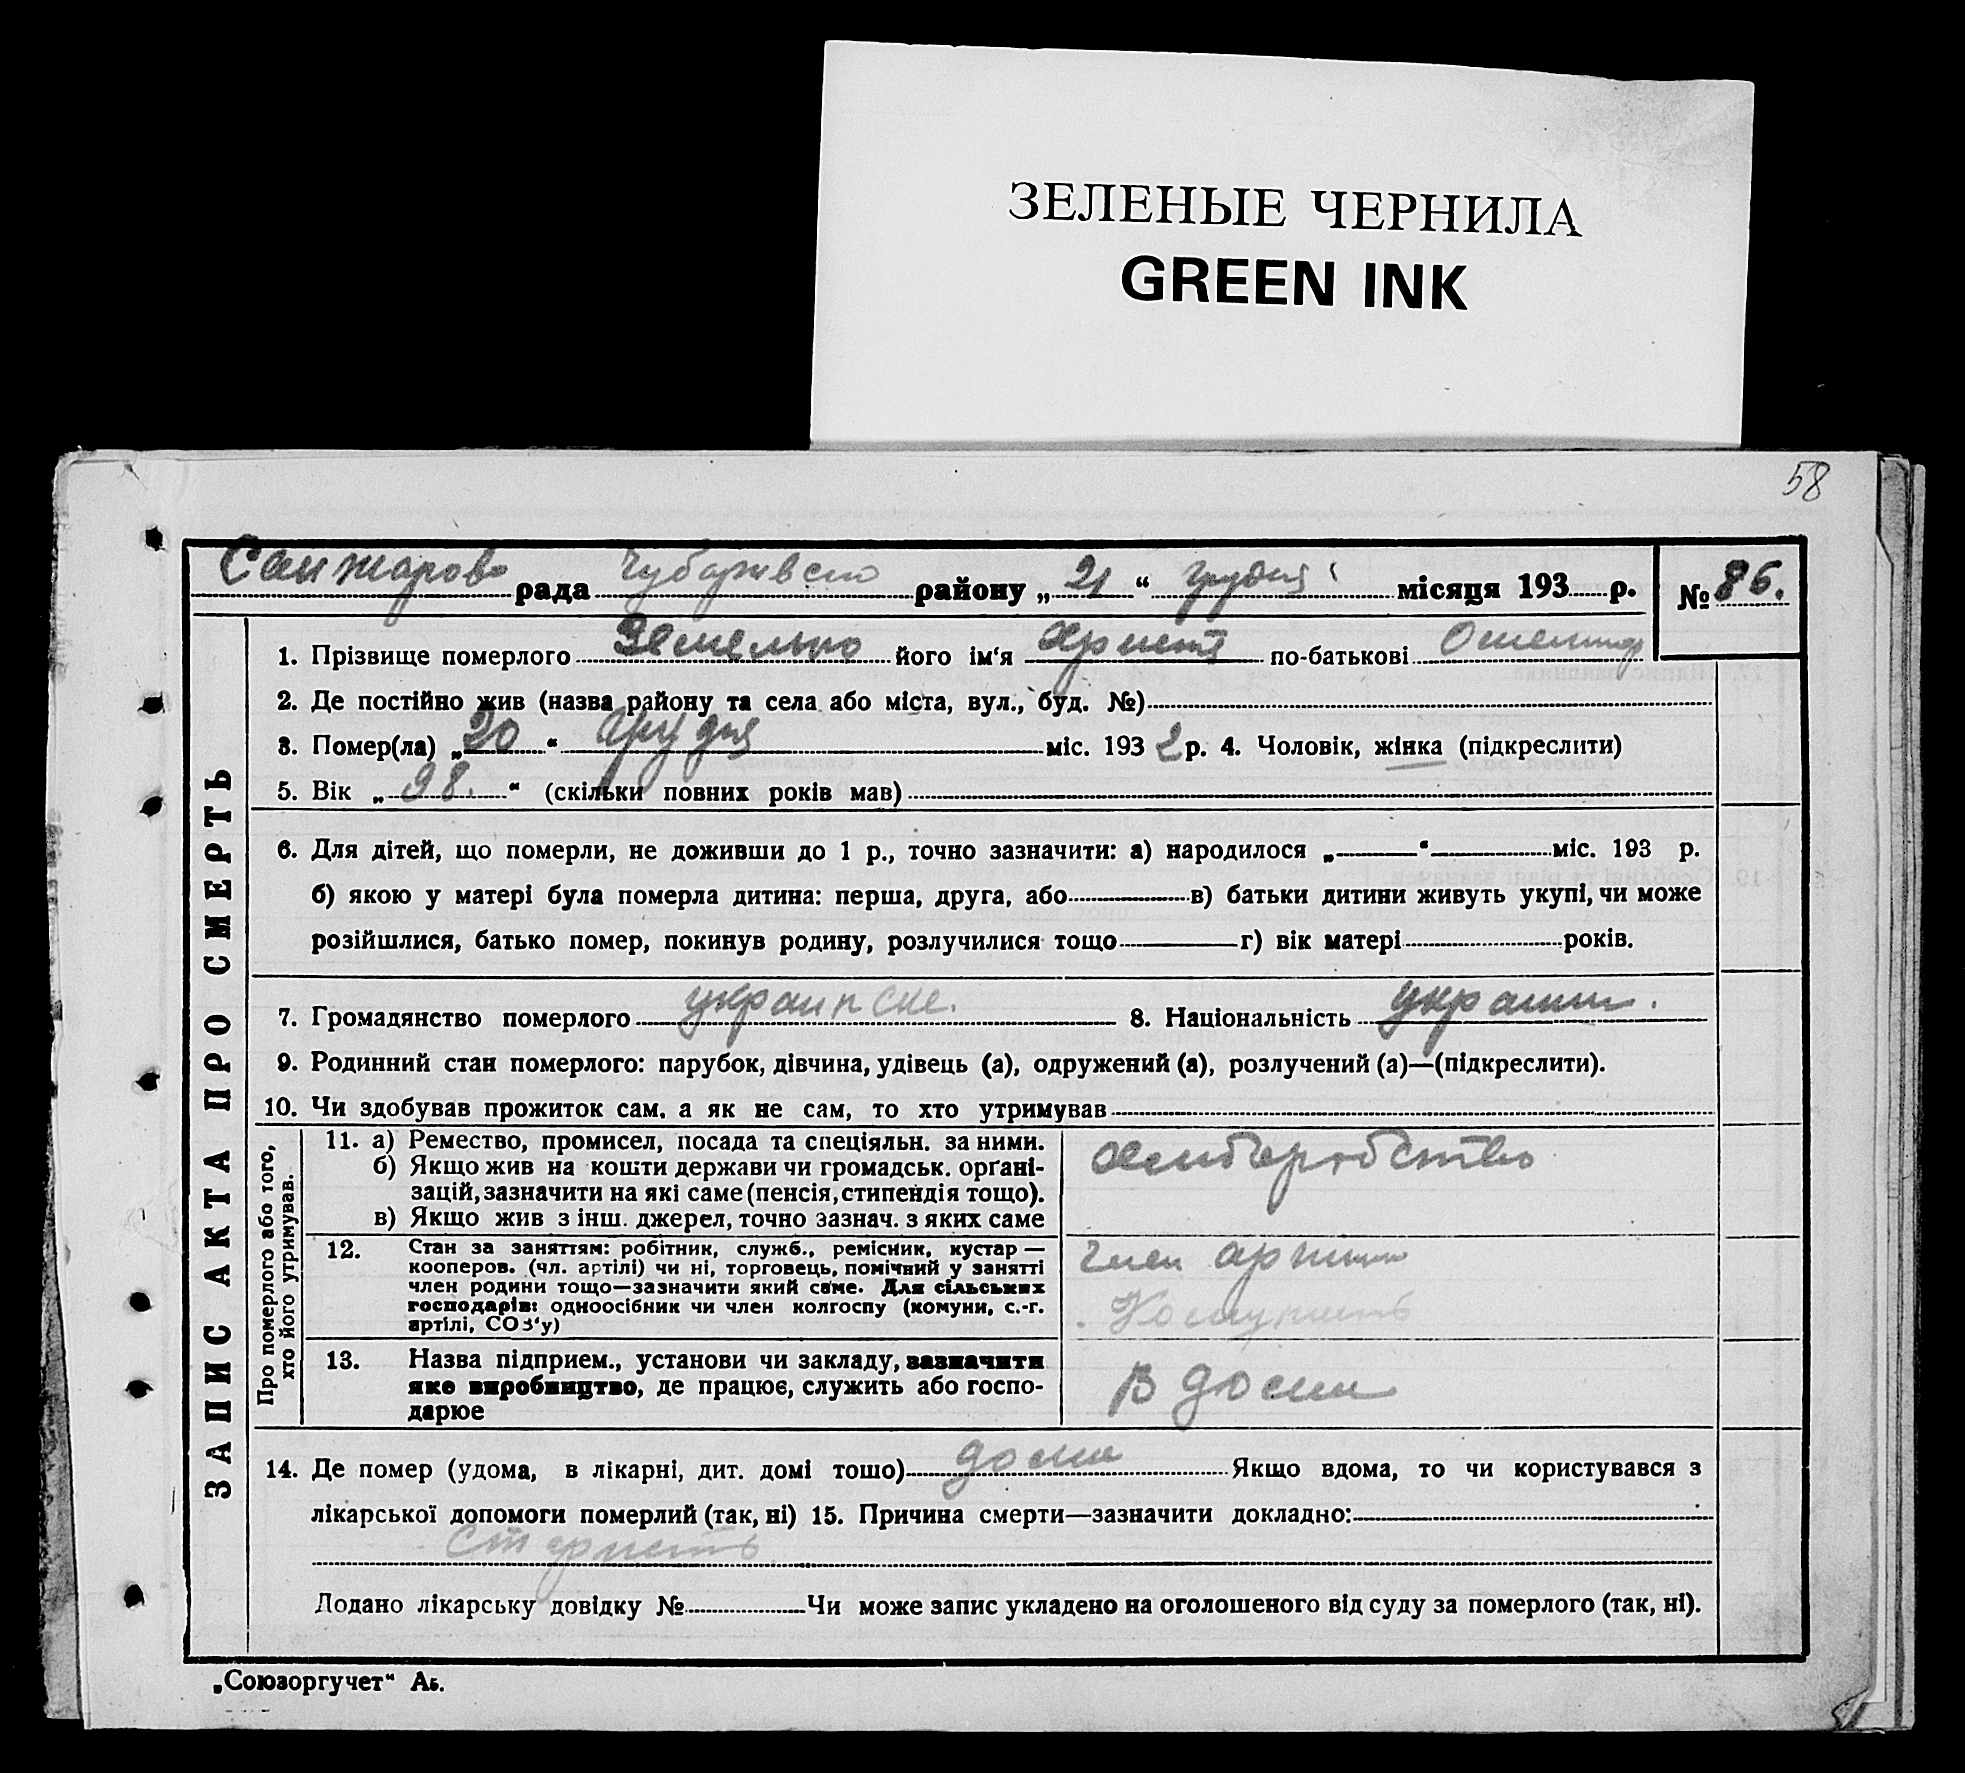 ЗЕЛЕНЫЕ ЧЕРНИЛА
GREEN INK
58
Санжаровс рада Чубарівсько району „21“ грудня місяця 193 р. № 86.
1. Прізвище померлого його ім‘я Христя по-батькові
2. Де постійно жив (назва району та села або міста, вул., буд. №)
3. Помер(ла) „20“ грудня міс. 1932 р. 4. Чоловік, жінка (підкреслити)
5. Вік „98.“ (скільки повних років мав)
6. Для дітей, що померли, не доживши до 1 р., точно зазначити: а) народилося „ “ міс. 193 р.
б) якою у матері була померла дитина: перша, друга, або в) батьки дитини живуть укупі, чи може
розійшлися, батько помер, покинув родину, розлучилися тощо г) вік матері років.
7. Громадянство померлого украинске. 8. Національність украин.
9. Родинний стан померлого: парубок, дівчина, удівець (а), одружений (а), розлучений (а)—(підкреслити).
10. Чи здобував прожиток сам, а як не сам, то хто утримував
11. а) Ремество, промисел, посада та спеціяльн. за ними.
б) Якщо жив на кошти держави чи громадськ. орґані-
зацій, зазначити на які саме (пенсія, стипендія тощо).
в) Якщо жив з інш. джерел, точно зазнач. з яких саме
хлиборобство
12. Стан за заняттям: робітник, служб., ремісник, кустар —
кооперов. (чл. артілі) чи ні, торговець, помічний у занятті
член родини тощо—зазначити який саме. Для сільських
господарів: одноосібник чи член колгоспу (комуни, с.-г.
артілі, СОЗ‘у)
член артили
13. Назва підприєм., установи чи закладу, зазначити
яке виробництво, де працює, служить або госпо-
дарює
В доми
14. Де помер (удома, в лікарні, дит. домі тошо) доми Якщо вдома, то чи користувався з
лікарської допомоги померлий (так, ні) 15. Причина смерти—зазначити докладно:
старисть
Додано лікарську довідку № Чи може запис укладено на оголошеного від суду за померлого (так, ні).
ЗАПИС АКТА ПРО СМЕРТЬ
Про померлого або того,
хто його утримував.
„Союзоргучет“ Аб.